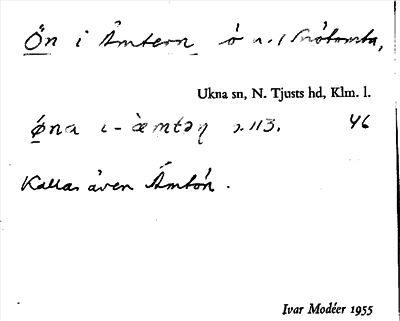 Ön i Ämtern ö n. I
Ukna sn, N. Tjusts hd, Klm. l.
øna ι- æmtəη s. 113. 46
Kallas även Ämtön.
Ivar Modéer 1955